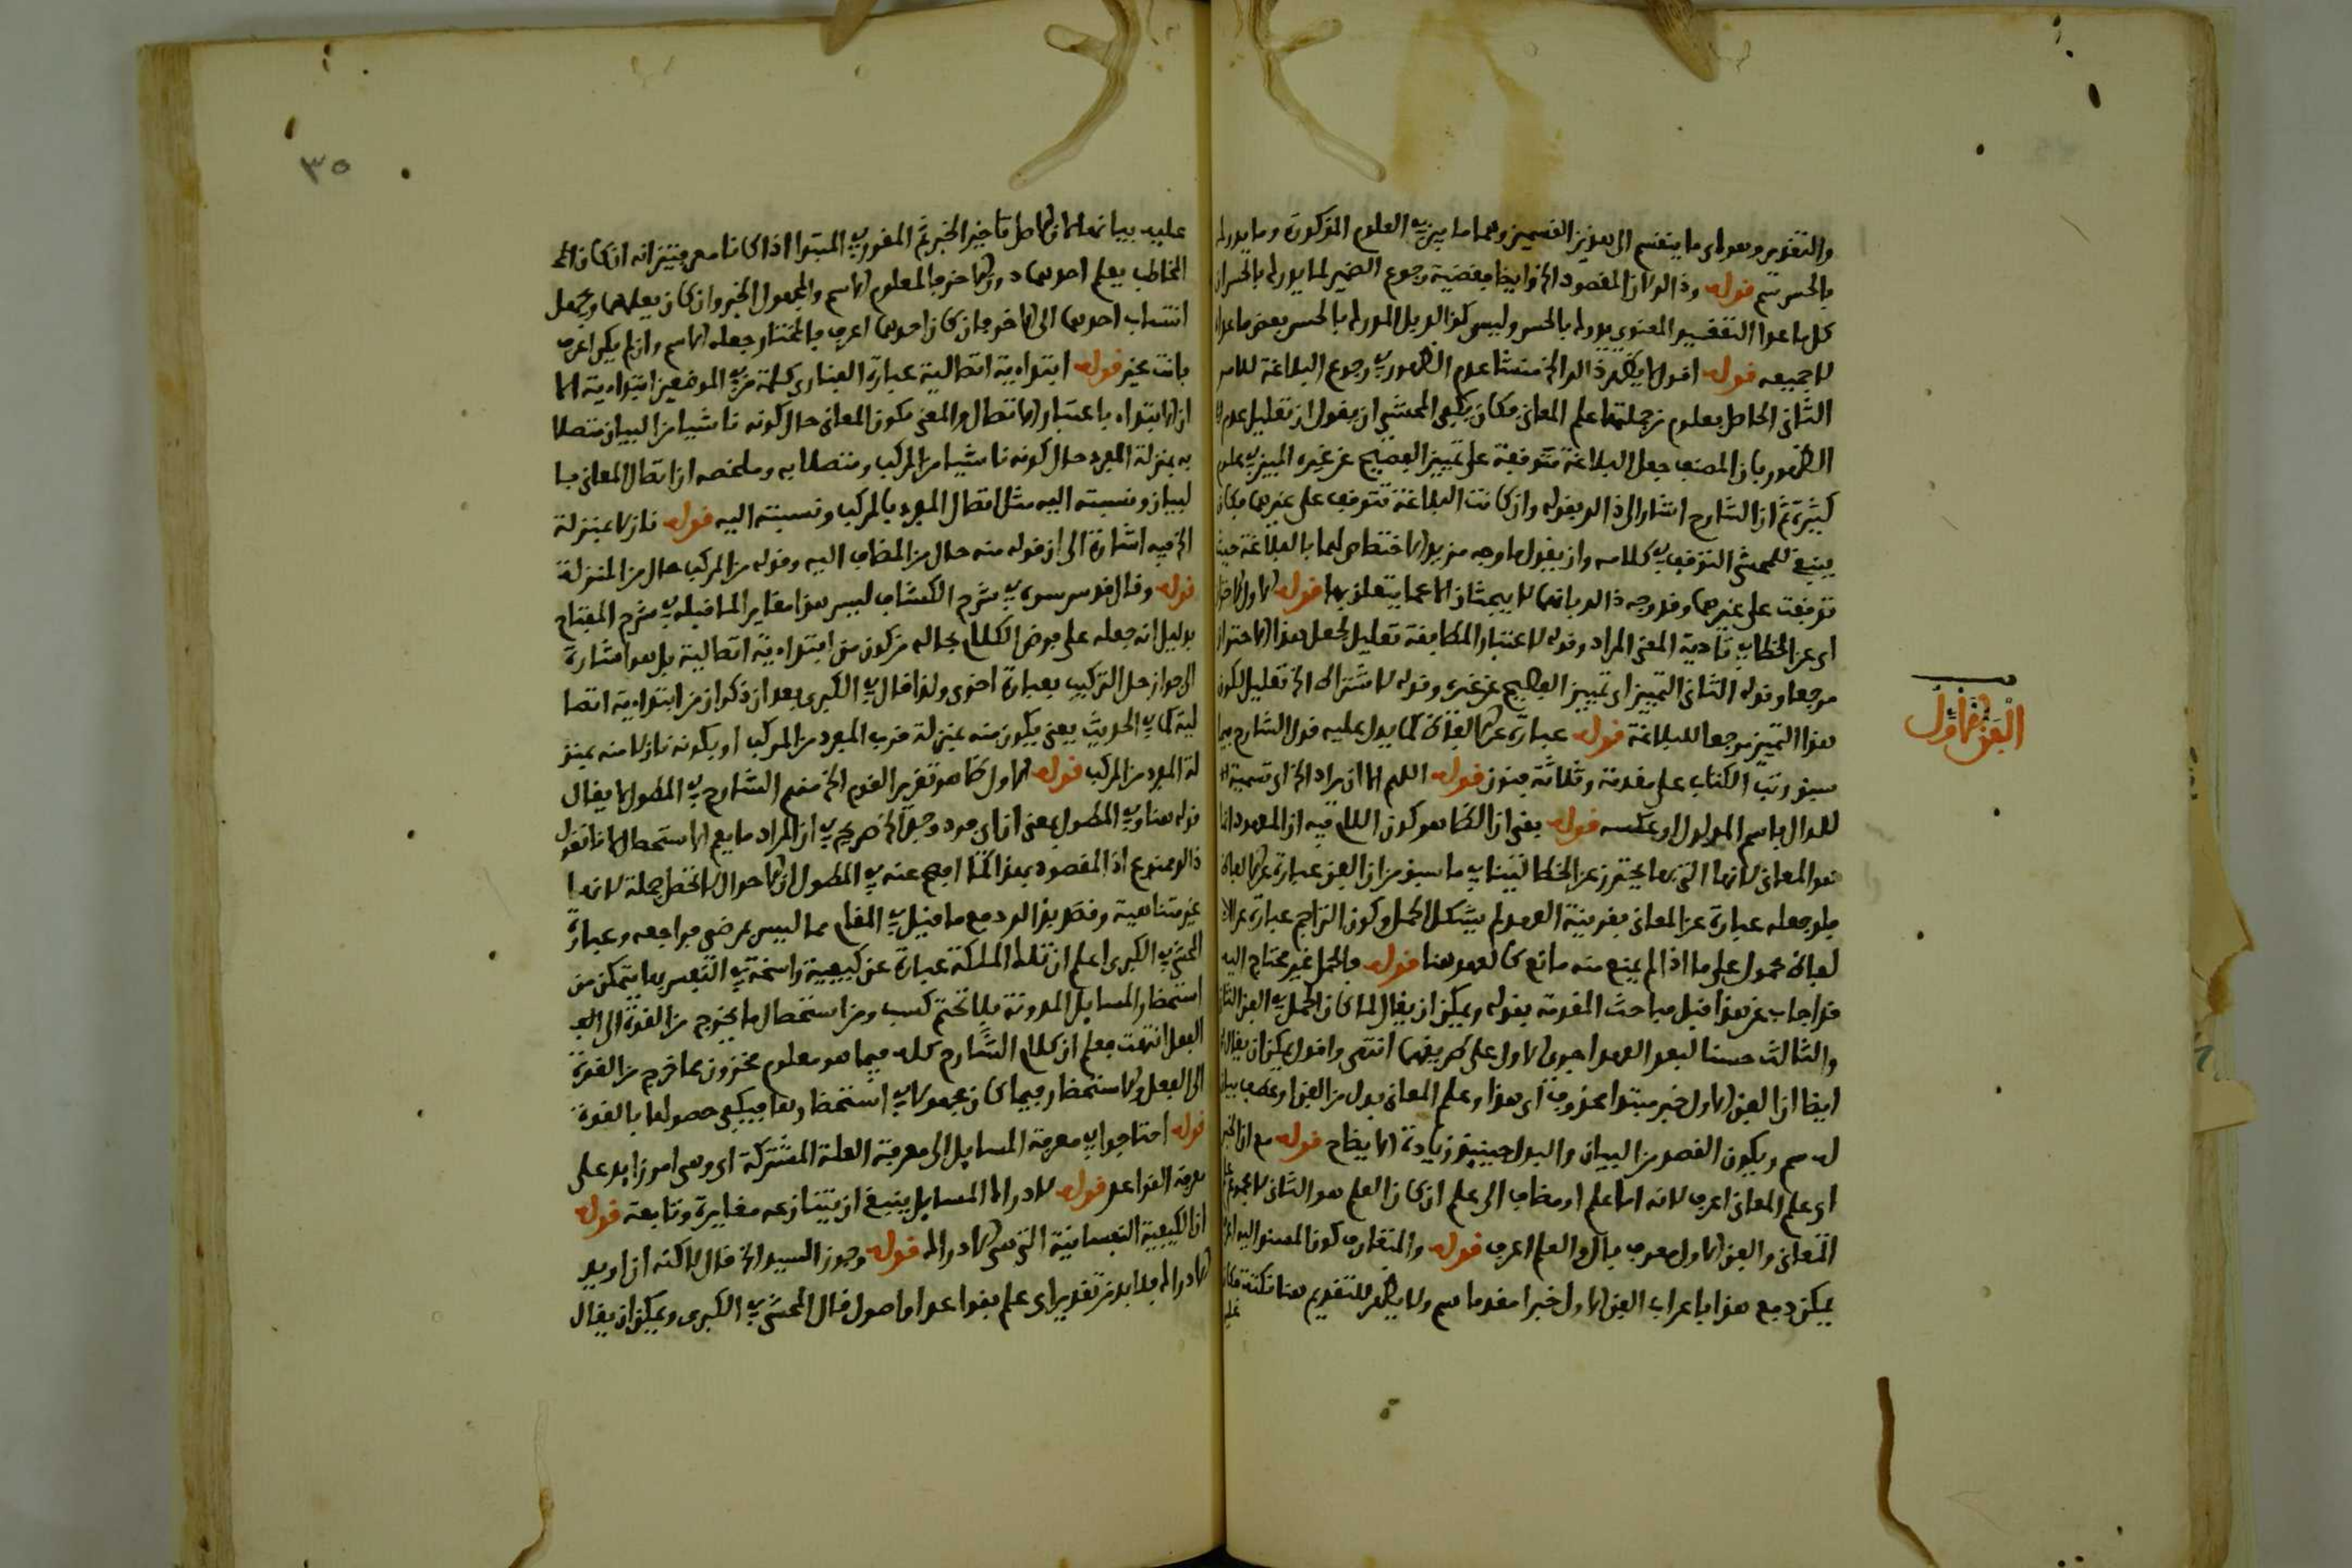 والتقدير وهو اى ما ينقسم الى هذين القسمين وهما ما يبين في العلوم المذكورة وما يدرك
بالحس سم قوله وذالك ان المقصود الخ وايضا مقتضية رجوع الضمير لما يدرك بالحس ان
كل ما عدا التعقيد المعنوي يدرك بالحس وليس كذالك بل المدرك بالحس بعض ما عداه
لا جميعه قوله اقول لا يظهر ذالك الخ منشا عدم الظهور رجوع البلاغة للامر
الثانى الحاصل بعلوم من جملتها علم المعانى فكان يكفي المحشي ان يقول ان تعليل عدم
الظهور بان المصنف جعل البلاغة متوقفة على تمييز الفصيح عن غيره المبين في علوم
كثيرة ثم ان الشارح اشار الى ذالك بقوله وان كانت البلاغة تتوقف على غيرهما فكان
ينبغي للمحشي التوقف في كلامه وان يقول ما وجه مزيد الاختصاص لهما بالبلاغة حيث
توقفت على غيرهما وقد وجه ذالك بانهما لا يبحثان الا عما يتعلق بها قوله الاول الاحتراز
اى عن الخطا في تادية المعنى المراد وقوله لاعتبار المطابقة تعليل لجعل هذا الاحتراز
مرجعا وقوله الثانى التمييز اى تمييز الفصيح عن غيره وقوله لاشتراط الخ تعليل لكون
هذا التمييز مرجعا للبلاغة قوله عبارة عن الالفاظ كما يدل عليه قول الشارح فيما
سبق ورتب الكتاب على مقدمة وثلاثة فنون قوله اللهم الا ان يراد الخ اى تسمية
للدال باسم المدلول او عكسه قوله يعني ان الظاهر كون اللام فيه ان المعهود انما
هو المعانى لانها التى بها يحترز عن الخطا في ما سبق من ان الفن عبارة عن الالفاظ
فلو جعله عبارة عن المعانى بقرينة العهد لم يشكل الحمل وكون التراجم عبارة عن الا
لفاظ محمول على ما اذا لم يمنع منه مانع كالعهد هنا قوله والحمل غير محتاج اليه
قد اجاب عن هذا قبل مباحث المقدمة بقوله ويمكن ان يقال لما كان الحمل في الفن الثانى
والثالث حسنا لبعد العهد اجرى الاول على طريقهما انتهى واقول يمكن ان يقال
ايضا ان الفن الاول خبر مبتدا محذوف اى هذا وعلم المعانى بدل من الفن او عطف بيان
له سم ويكون القصد من البيان والبدل حينئذ زيادة الايضاح قوله مع ان الخبر
اى علم المعانى اعرف لانه اما علم او مضاف الى علم ان كان العلم هو الثانى لا مجموع علم
المعانى والفن الاول معرف بال والعلم اعرف قوله والمتعارف كون المسند اليه الخ
يمكن دفع هذا باعراب الفن الاول خبرا مقدما سم ولا يظهر للتقديم هنا نكتة فكان
عليه
الْفَنُّ الْأَوَّل
٣٥
عليه بيانها لان الاصل تاخير الخبر ثم المقرر في المبتدا اذا كانا معرفتين انه ان كان
المخاطب يعلم احدهما دون الاخر فالمعلوم الاسم والمجهول الخبر وان كان يعلمهما ويجهل
انتساب احدهما الى الاخر فان كان احدهما اعرف فالمختار جعله الاسم وان لم يكن اعرف
فانت مخير قوله ابتدائية اتصالية عبارة الفنارى كلمة من في الموضعين ابتدائية الا
ان الابتداء باعتبار الاتصال والمعنى يكون المعانى حال كونه ناشيا من البيان متصلا
به بمنزلة المفرد حال كونه ناشيا من المركب ومتصلا به وملخصه ان اتصال المعانى با
لبيان ونسبته اليه مثل اتصال المفرد بالمركب ونسبته اليه قوله نازلا بمنزلة
الخ فيه اشارة الى ان قوله منه حال من المضاف اليه وقوله من المركب حال من المنزلة
قوله وقال قدس سره في شرح الكشاف ليس هذا مغايرا لما قبله في شرح المفتاح
بدليل انه جعله على فرض الكلام بحاله من كون من ابتدائية اتصالية بل هو اشارة
الى جواز حل التركيب بعبارة اخرى ولذا قال في الكبرى بعد ان ذكر ان من ابتدائية اتصا
لية كما في الحديث يعني يكون منه بمنزلة قرب المفرد من المركب او يكونه نازلا منه بمنز
لة المفرد من المركب قوله الاول كما هو تقرير القوم الخ منهم الشارح في المطول لا يقال
قوله هنا وفي المطول بمعنى ان اى فرد وجد الخ صريح في ان المراد ما يعم الاستحصال لانا نقول
ذالك ممنوع اذ المقصود بهذا كما افصح عنه في المطول ان الاحوال لا تحصل جملة لانها
غير متناهية وقصر بذالك دفع ما قيل في المقام مما ليس بمرضي فراجعه وعبارة
المحشي في الكبرى اعلم ان تلك الملكة عبارة عن كيفية راسخة في النفس بها يتمكن من
استحضار المسايل المدونة بلا تجشم كسب ومن استحصال ما يخرج من القوة الى الفـ
الفعل انتهت فعلم ان كلام الشارح كله فيما هو معلوم مخزون فما خرج من القوة
الى الفعل والاستحضار فيما كان مجهولا في استحضارها فيكفي حصولها بالقوة
قوله احتاجوا في معرفة المسايل الى معرفة العلة المشتركة اى وهى امر زايد على
معرفة القواعد قوله لادراك المسايل ينبغي ان يتنازعه مغايرة وتابعة قوله
ان الكيفية النفسانية التى هى الادراك قوله وجوز السيد الخ قال لاكنه ان اريد
الادراك فلا بد من تقدير اى علم بقواعد او اصول قال المحشي في الكبرى ويمكن ان يقال